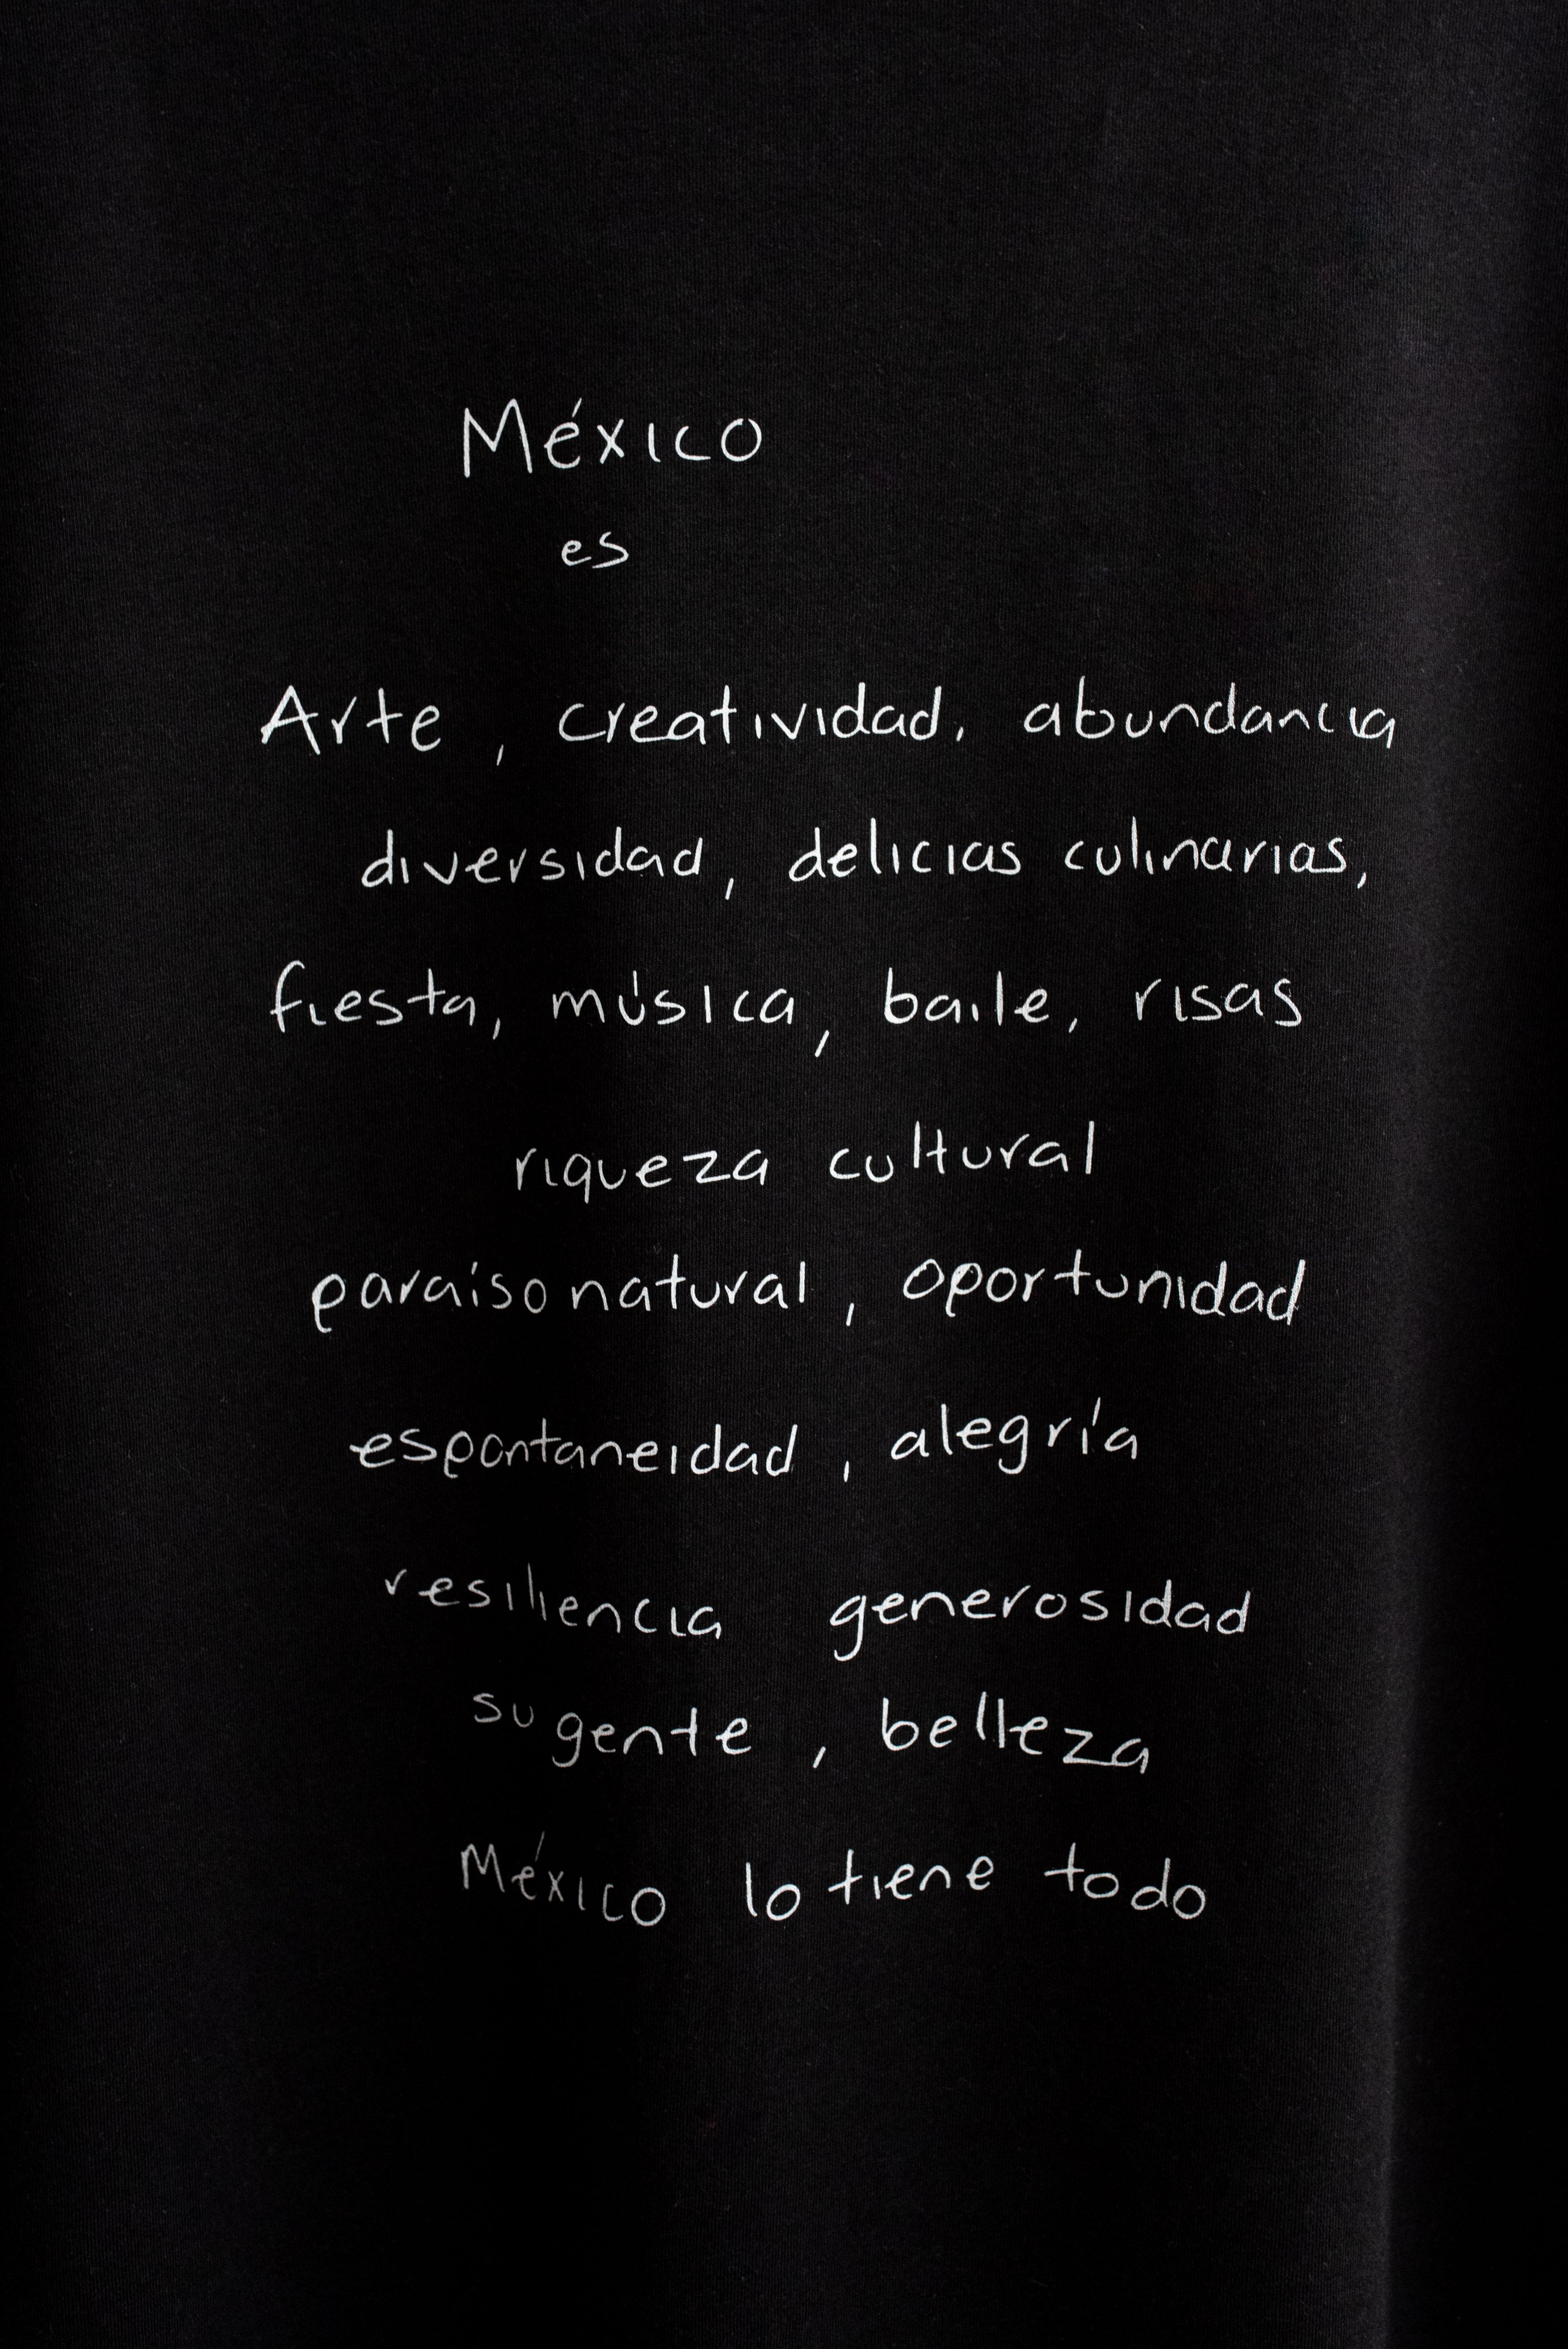 México
es
Arte, creatividad, abundancia
diversidad, delicias culinarias,
fiesta, música, baile, risas
riqueza cultural
paraíso natural, oportunidad
espontaneidad, alegría
resiliencia generosidad
su gente, belleza
México lo tiene todo